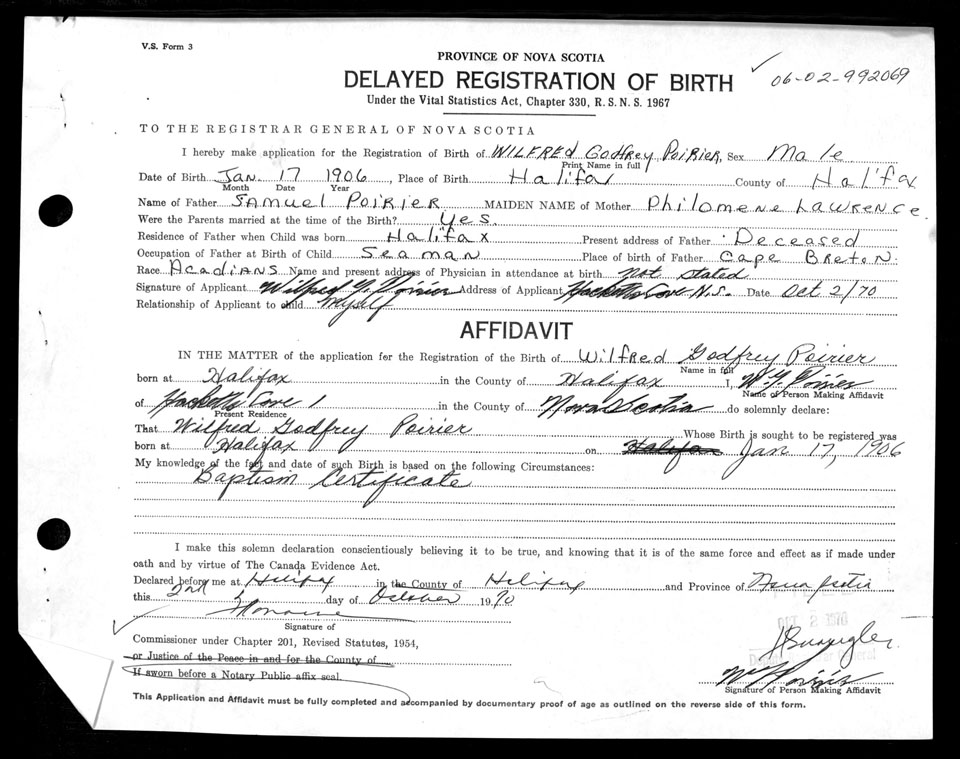 V.S. Form 3
PROVINCE OF NOVA SCOTIA
DELAYED REGISTRATION OF BIRTH
06-02-992069
Under the Vital Statistics Act, Chapter 330, R.S.N.S. 1967
TO THE REGISTRAR GENERAL OF NOVA SCOTIA
I hereby make application for the Registration of Birth of WILFRED Godfrey Poirier, Sex Male
Print Name in full
Date of Birth Jan. 17 1906, Place of Birth Halifax County of Halifax
Month Date Year
Name of Father Samuel Poirier MAIDEN NAME of Mother Philomene Lawrence.
Were the Parents married at the time of the Birth? Yes.
Residence of Father when Child was born Halifax Present address of Father Deceased
Occupation of Father at Birth of Child Seaman Place of birth of Father Cape Breton.
Race Acadians Name and present address of Physician in attendance at birth not stated
Signature of Applicant Wilfred G. Poirier Address of Applicant Hacketts Cove N.S. Date Oct 2/70
Relationship of Applicant to child myself
AFFIDAVIT
IN THE MATTER of the application for the Registration of the Birth of Wilfred Godfrey Poirier
Name in full
born at Halifax in the County of Halifax I, W. G. Poirier
Name of Person Making Affidavit
of Hacketts Cove in the County of Nova Scotia do solemnly declare:
Present Residence
That Wilfred Godfrey Poirier Whose Birth is sought to be registered was
born at Halifax on Halifax Jan 17, 1906
My knowledge of the fact and date of such Birth is based on the following Circumstances:
Baptism Certificate
I make this solemn declaration conscientiously believing it to be true, and knowing that it is of the same force and effect as if made under
oath and by virtue of The Canada Evidence Act.
Declared before me at Halifax in the County of Halifax and Province of Nova Scotia
this 2nd day of October 1970
Signature of
Commissioner under Chapter 201, Revised Statutes, 1954,
or Justice of the Peace in and for the County of
If sworn before a Notary Public affix seal.
W G Poirier
Signature of Person Making Affidavit
This Application and Affidavit must be fully completed and accompanied by documentary proof of age as outlined on the reverse side of this form.